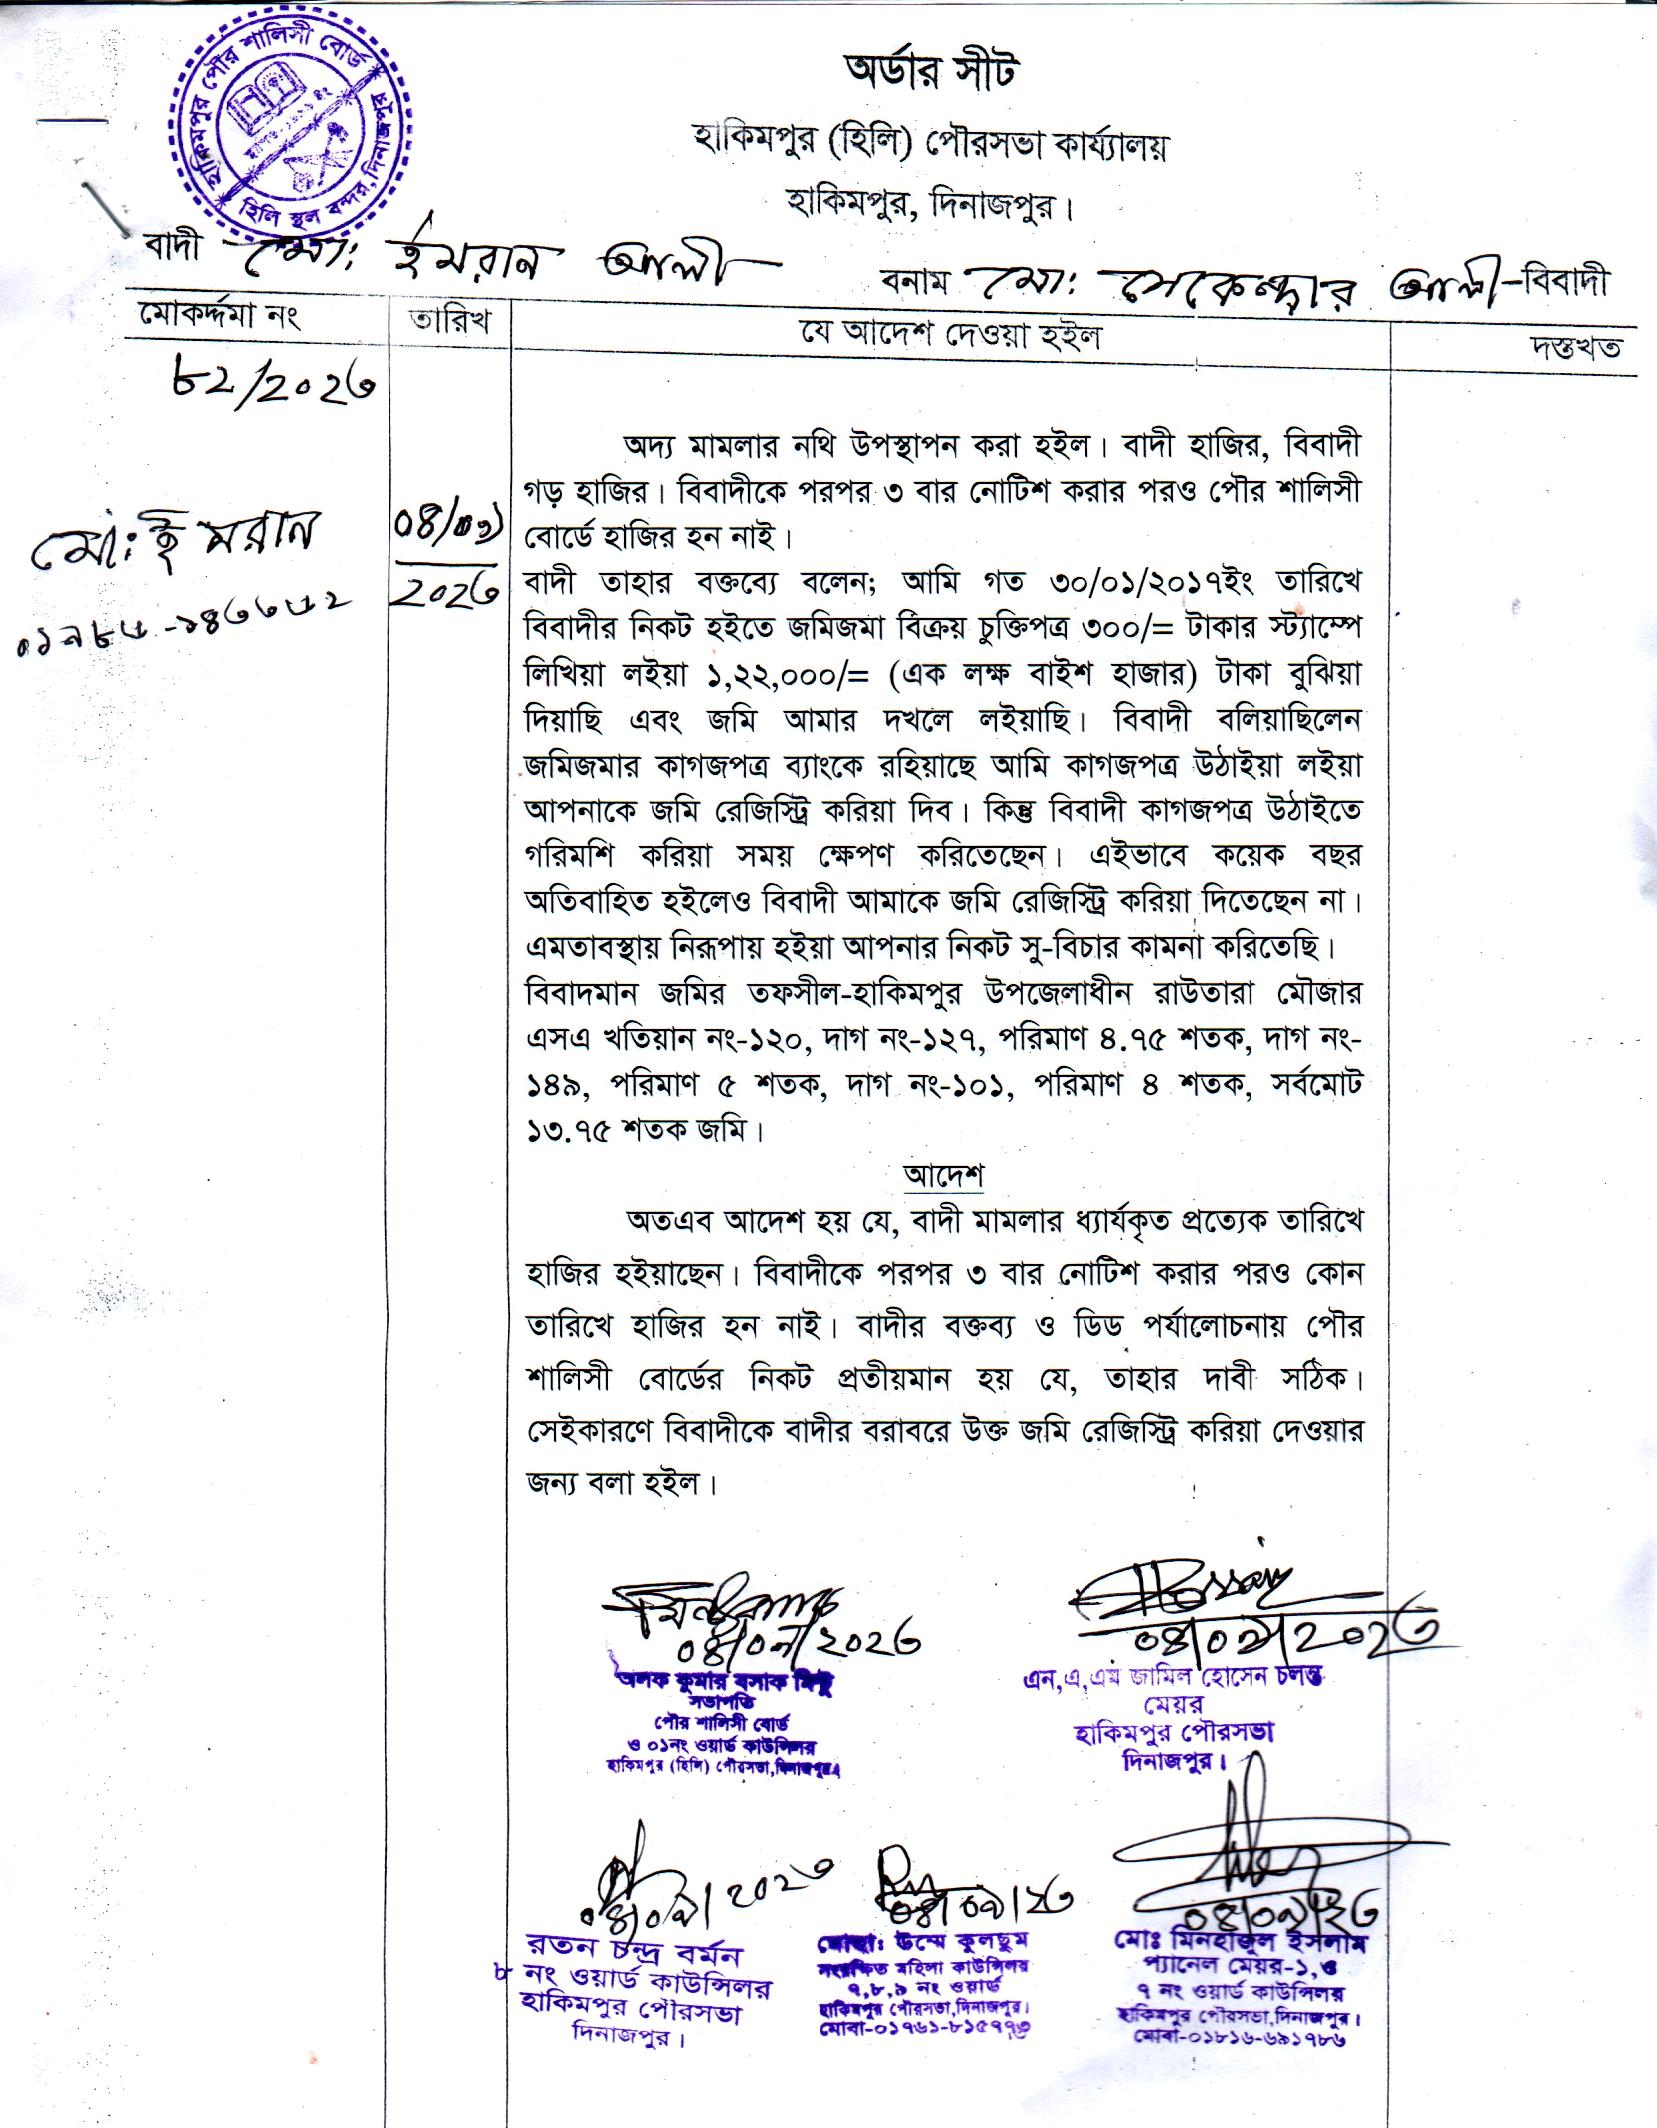 হাকিমপুর পৌর শালিসী বোর্ড
হিলি স্থল বন্দর, দিনাজপুর
অর্ডার সীট
হাকিমপুর (হিলি) পৌরসভা কার্য্যালয়
হাকিমপুর, দিনাজপুর।
বাদী মো: ইমরান আলী বনাম মো: সেকেন্দার আলী-বিবাদী
মোকর্দ্দমা নং তারিখ যে আদেশ দেওয়া হইল দস্তখত
৮২/২০২৩
অদ্য মামলার নথি উপস্থাপন করা হইল। বাদী হাজির, বিবাদী
গড় হাজির। বিবাদীকে পরপর ৩ বার নোটিশ করার পরও পৌর শালিসী
বোর্ডে হাজির হন নাই।
মো: ইমরান
০৪/০৯
২০২৩
বাদী তাহার বক্তব্যে বলেন; আমি গত ৩০/০১/২০১৭ইং তারিখে
বিবাদীর নিকট হইতে জমিজমা বিক্রয় চুক্তিপত্র ৩০০/= টাকার স্ট্যাম্পে
লিখিয়া লইয়া ১,২২,০০০/= (এক লক্ষ বাইশ হাজার) টাকা বুঝিয়া
দিয়াছি এবং জমি আমার দখলে লইয়াছি। বিবাদী বলিয়াছিলেন
জমিজমার কাগজপত্র ব্যাংকে রহিয়াছে আমি কাগজপত্র উঠাইয়া লইয়া
আপনাকে জমি রেজিস্ট্রি করিয়া দিব। কিন্তু বিবাদী কাগজপত্র উঠাইতে
গরিমশি করিয়া সময় ক্ষেপণ করিতেছেন। এইভাবে কয়েক বছর
অতিবাহিত হইলেও বিবাদী আমাকে জমি রেজিস্ট্রি করিয়া দিতেছেন না।
এমতাবস্থায় নিরূপায় হইয়া আপনার নিকট সু-বিচার কামনা করিতেছি।
বিবাদমান জমির তফসীল-হাকিমপুর উপজেলাধীন রাউতারা মৌজার
এসএ খতিয়ান নং-১২০, দাগ নং-১২৭, পরিমাণ ৪.৭৫ শতক, দাগ নং-
১৪৯, পরিমাণ ৫ শতক, দাগ নং-১০১, পরিমাণ ৪ শতক, সর্বমোট
১৩.৭৫ শতক জমি।
আদেশ
অতএব আদেশ হয় যে, বাদী মামলার ধ্যার্যকৃত প্রত্যেক তারিখে
হাজির হইয়াছেন। বিবাদীকে পরপর ৩ বার নোটিশ করার পরও কোন
তারিখে হাজির হন নাই। বাদীর বক্তব্য ও ডিড পর্যালোচনায় পৌর
শালিসী বোর্ডের নিকট প্রতীয়মান হয় যে, তাহার দাবী সঠিক।
সেইকারণে বিবাদীকে বাদীর বরাবরে উক্ত জমি রেজিস্ট্রি করিয়া দেওয়ার
জন্য বলা হইল।
০৪/০৯/২০২৩ ০৪/০৯/২০২৩
অলক কুমার বসাক মিন্টু
সভাপতি
পৌর শালিসী বোর্ড
ও ০১নং ওয়ার্ড কাউন্সিলর
হাকিমপুর (হিলি) পৌরসভা, দিনাজপুর।
এন,এ,এম জামিল হোসেন চলন্ত
মেয়র
হাকিমপুর পৌরসভা
দিনাজপুর।
০৪/০৯/২০২৩ ০৪/০৯/২৩ ০৪/০৯/২৩
রতন চন্দ্র বর্মন
৮ নং ওয়ার্ড কাউন্সিলর
হাকিমপুর পৌরসভা
দিনাজপুর।
মোছা: উম্মে কুলছুম
সংরক্ষিত মহিলা কাউন্সিলর
৭,৮,৯ নং ওয়ার্ড
হাকিমপুর পৌরসভা,দিনাজপুর।
মোবা-০১৭৬১-৮১৫৭৭৩
মোঃ মিনহাজুল ইসলাম
প্যানেল মেয়র-১,ও
৭ নং ওয়ার্ড কাউন্সিলর
হাকিমপুর পৌরসভা,দিনাজপুর।
মোবা-০১৮১৬-৬৯১৭৮৬